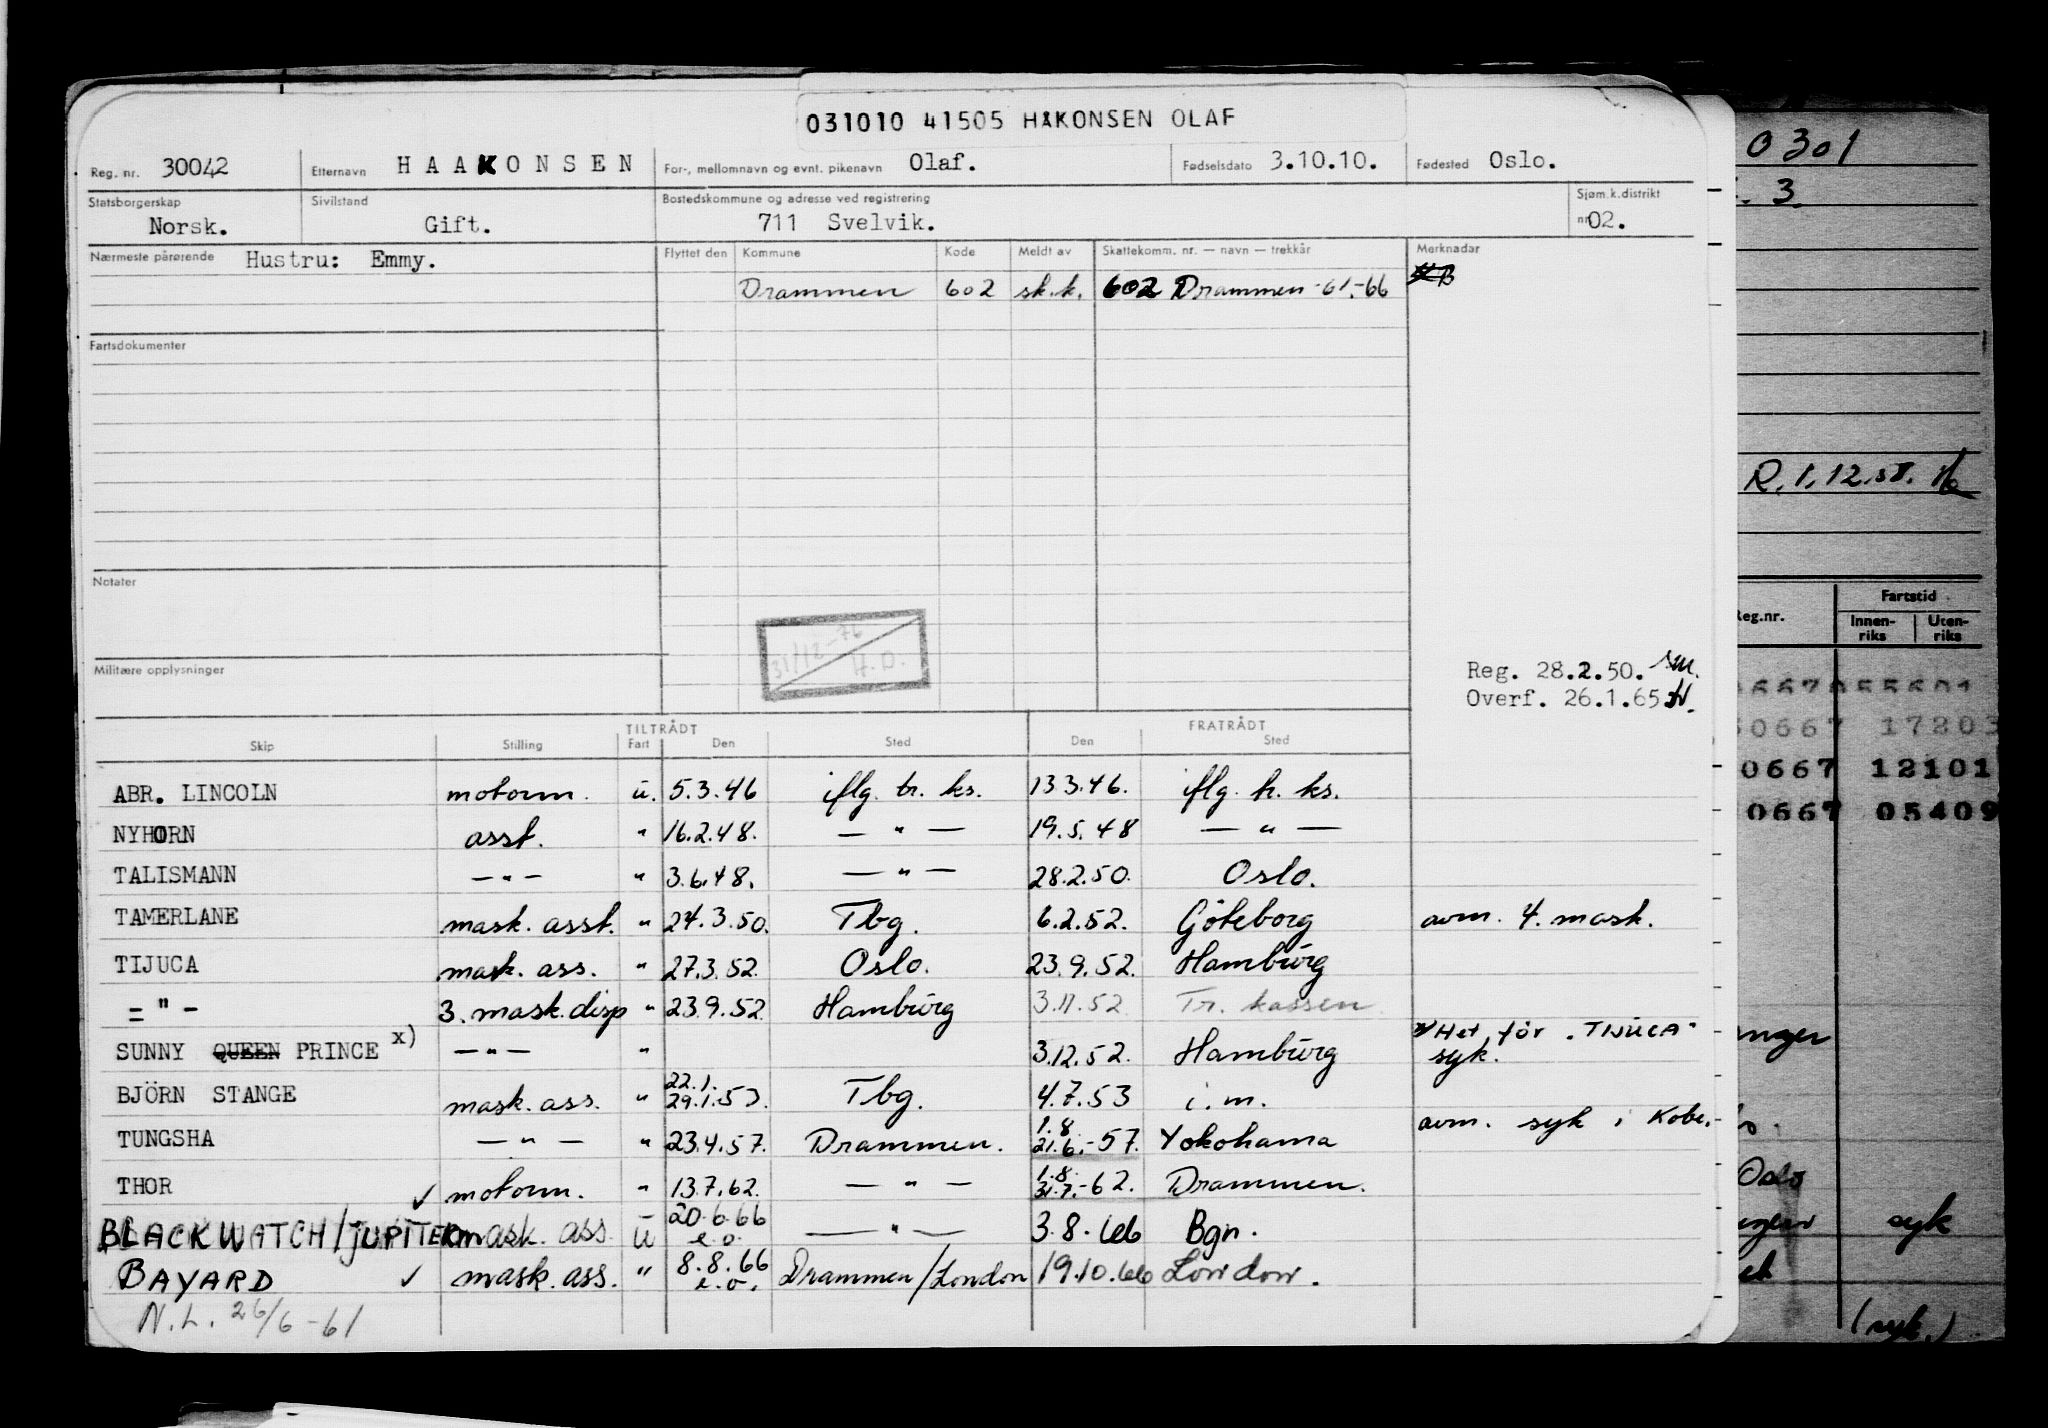 031010 41505 HAKONSEN OLAF
Reg. nr. 30042 Etternavn HAAKONSEN For-, mellomnavn og evnt. pikenavn Olaf. Fødselsdato 3.10.10. Fødested Oslo.
Statsborgerskap Sivilstand Bostedskommune og adresse ved registrering Sjøm.k.distrikt
Norsk. Gift. 711 Svelvik. nr 02.
Nærmeste pårørende Hustru: Emmy. Flyttet den Kommune Kode Meldt av Skattekomm. nr. — navn — trekkår Merknader
Drammen 602 sk.k. 602 Drammen -61.-66
Fartsdokumenter
Notater
31/12-76
H.O.
Militære opplysninger
Reg. 28.2.50.
Overf. 26.1.65
TILTRÅDT FRATRÅDT
Skip Stilling Fart Den Sted Den Sted
ABR. LINCOLN motorm. u. 5.3.46 iflg. tr. ks. 13.3.46. iflg. tr. ks.
NYHORN asst. " 16.2.48. — " — 19.5.48 — " —
TALISMANN — " — " 3.6.48. — " — 28.2.50. Oslo.
TAMERLANE mask. asst. " 24.3.50. Tbg. 6.2.52. Göteborg avm. 4. mask.
TIJUCA mask. ass. " 27.3.52. Oslo. 23.9.52. Hamburg
= " - 3. mask. disp " 23.9.52 Hamburg 3.11.52. Tr. kassen
SUNNY QUEEN PRINCE x) — " — " 3.12.52. Hamburg x) Het før "TIJUCA"
syk.
BJÖRN STANGE mask. ass. " 22.1. 29.1.53. Tbg. 4.7.53 i.m.
TUNGSHA — " — " 23.4.57. Drammen. 1.8. 21.6.-57. Yokohama avm. syk i Kobe.
THOR ✓ motorm. " 13.7.62. — " — 1.8. 31.7.-62. Drammen.
BLACKWATCH/JUPITER mask. ass. u 20.6.66 e.o. — " — 3.8.66 Bgn.
BAYARD ✓ mask. ass. " 8.8.66 e.o. Drammen/London 19.10.66 London.
N.L. 26/6-61
0301
3.
R. 1.12.
Reg.nr. Fartstid
Innen-riks Uten-riks
0667 055601
50667 17203
0667 12101
0667 05409
Oslo
syk
(syk.)